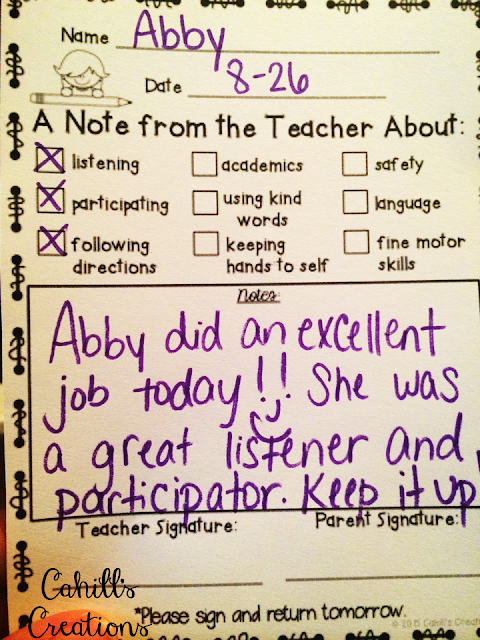 Name Abby
Date 8-26
A Note from the Teacher About:
listening academics safety
participating using kind words language
following directions keeping hands to self fine motor skills
Notes:
Abby did an excellent
job today!! She was
a great listener and
participator. Keep it up
Teacher Signature: Parent Signature:
*Please sign and return tomorrow.
© 2015 Cahill's Creations
Cahill's
Creations